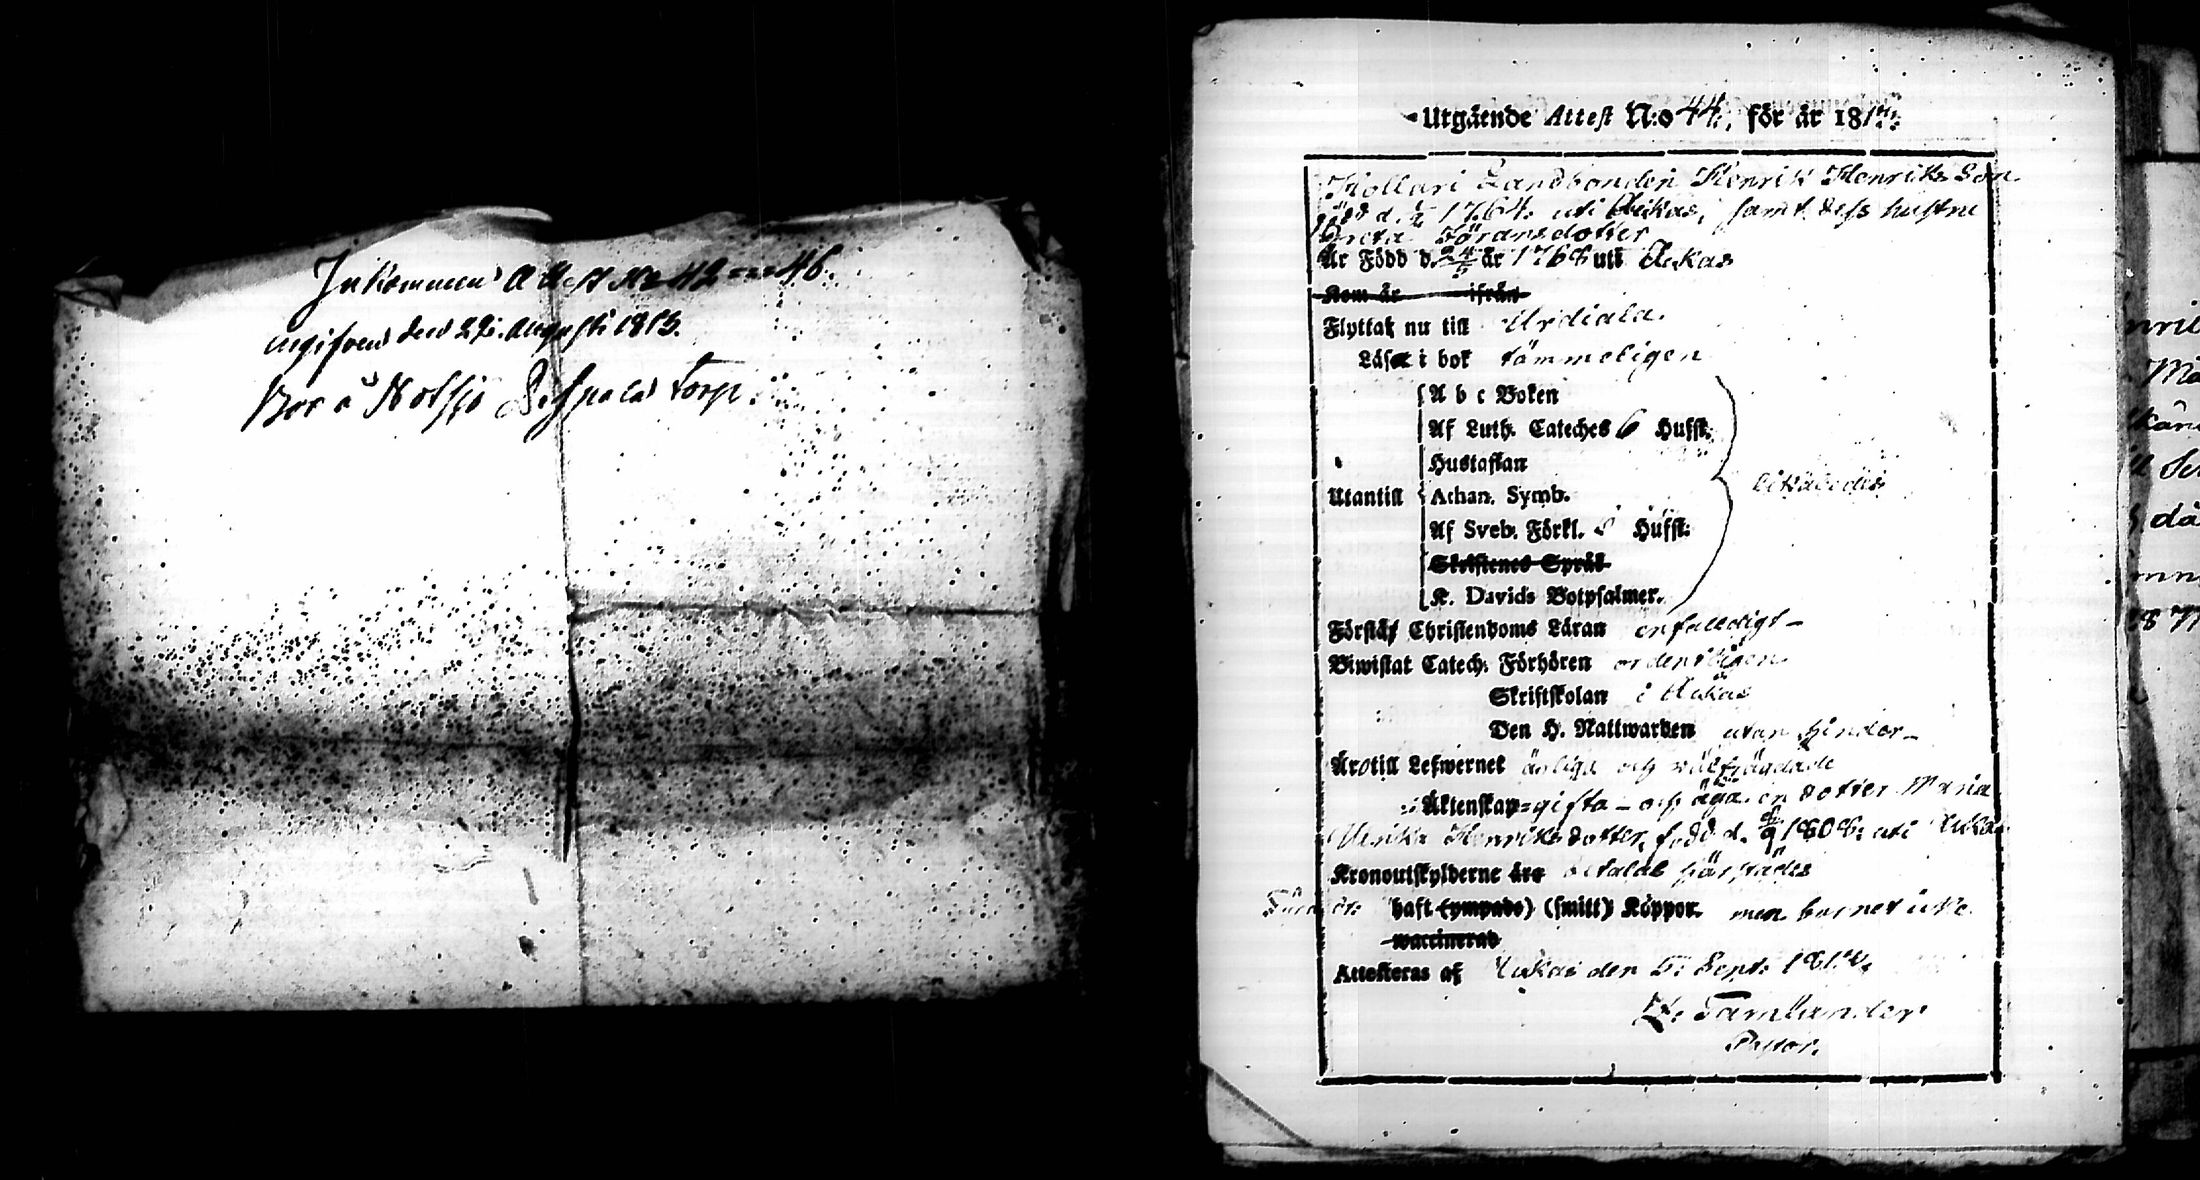 Inkommen Attest No 42 == 46.
ingifven den 22. Augusti 1813.
Bor å Notsjö Torp.
Utgående Attest N:o 44., för år 181
Kollari Landbonden Henrik Henriksson
född d. 1764. uti Akkas, samt dess hustru
Greta Göransdotter
Är Född d. 24/5 år 1768 uti Akkas
Kom år ifrån
Flyttat nu till Urdiala.
Läsa i bok tämmeligen
A b c Boken
Af Luth. Cateches 6 Hufst.
Hustaflan
Utantill Athan. Symb.
Af Sveb. Förkl. Hufst:
Skriftenes Språk
K. Davids Botpsalmer.
likaledes
Förstå Christendoms Läran enfalldigt -
Biwistat Catech. Förhören ordentligen
Skriftskolan i Akkas
Den H. Nattwarden utan hinder -
Äro till Lefwernet ärliga och välfrägdade
Äktenskap = gifta - och äga en dotter Maria
Ulrika Henriksdotter, född d. 1808: uti Akkas
Kronoutskylderne äro betalas härstädes
haft (ympade) (smitt) Koppor. men barnet icke
waccinerad
Attesteras af Akkas den 5: Sept: 181
Tamlander
Pastor.
nril
Mä
dä